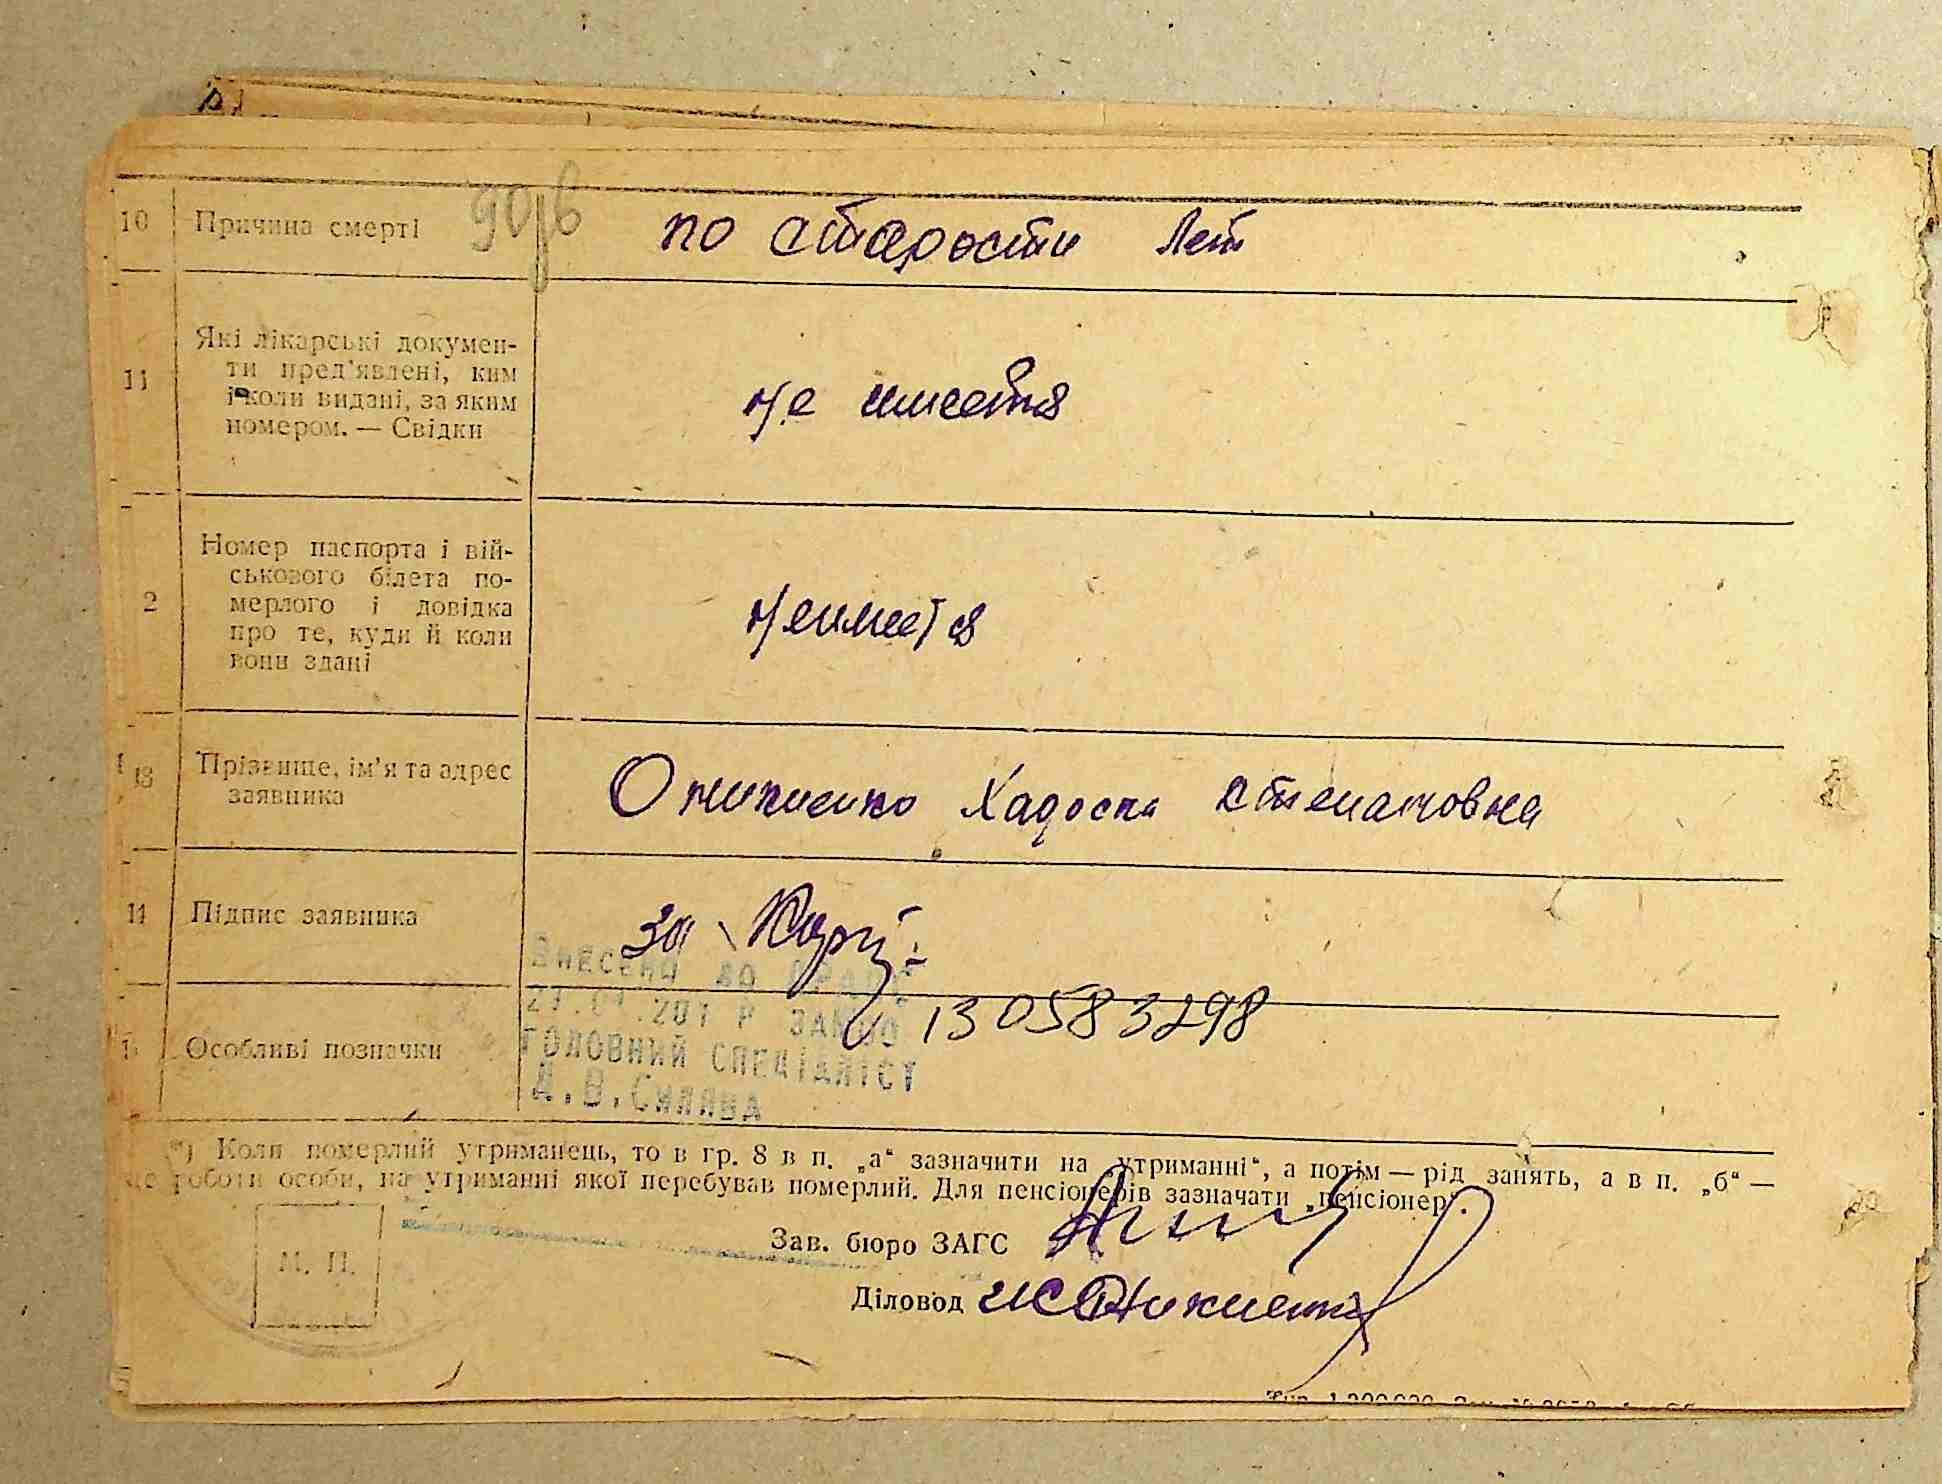 10 Причина смерті 90/б по старости лет
11 Які лікарські докумен-
ти пред'явлені, ким
і коли видані, за яким
номером. — Свідки
не имеется
2 Номер паспорта і вій-
ськового білета по-
мерлого і довідка
про те, куди й коли
вони здані
неимеется
13 Прізвище, ім'я та адрес
заявника
Оникиенко Хадоска Степановна
14 Підпис заявника
за
Внесено до
27.0 .201 Р
130583298
Особливі позначки
ГОЛОВНИЙ СПЕЦІАЛІСТ
А.В.Силява
*) Коли померлий утриманець, то в гр. 8 в п. „а“ зазначити на „утриманні“, а потім — рід занять, а в п. „б“ —
це роботи особи, на утриманні якої перебував померлий. Для пенсіонерів зазначати „пенсіонер“.
М. П.
Зав. бюро ЗАГС
Діловод